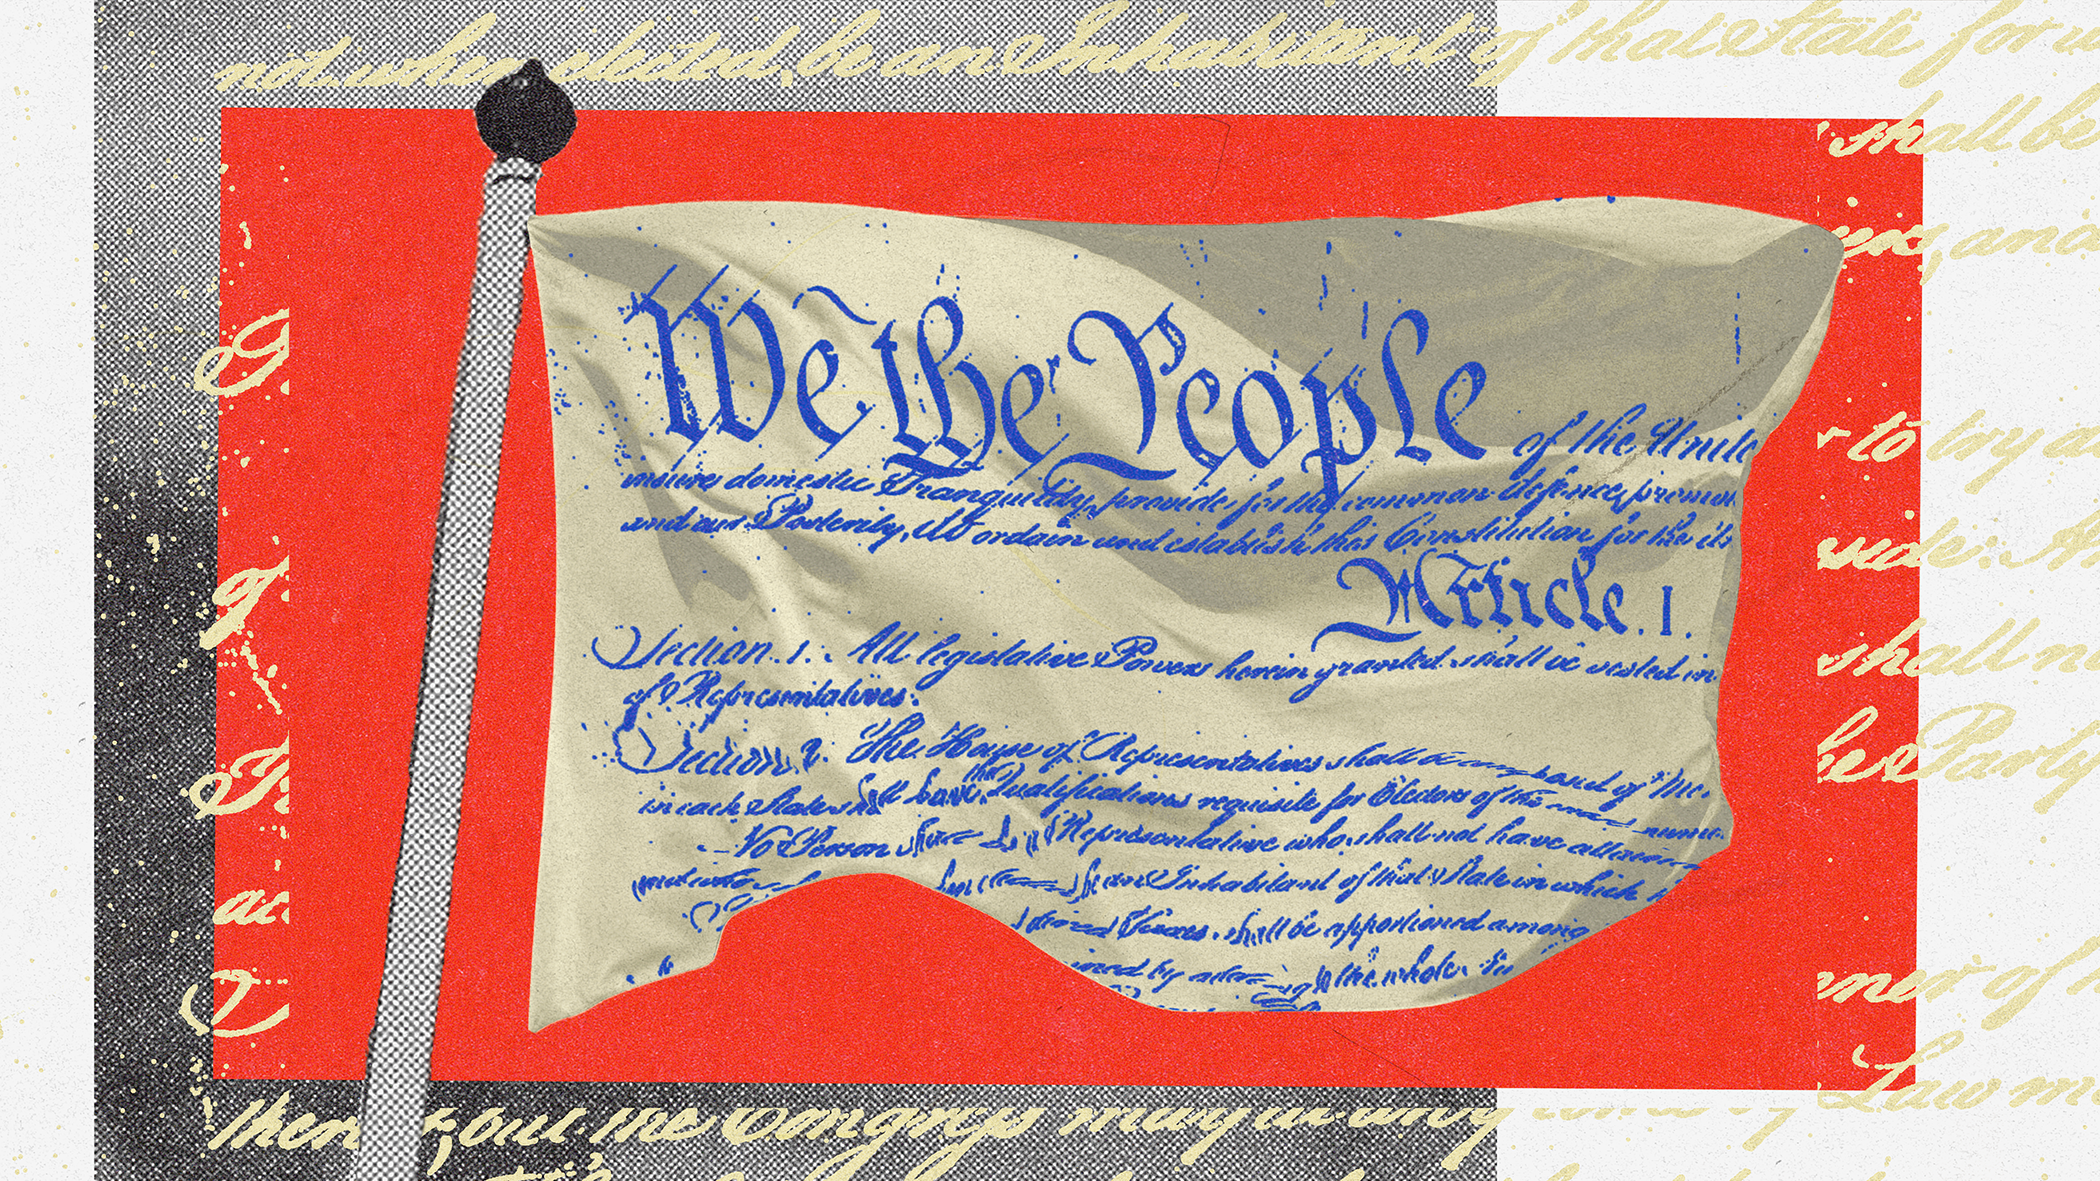 not, when elected, be an Inhabitant of that State for w
shall be
and
We the People of the Unite
insure domestic Tranquility, provide for the common defence, promo
and our Posterity, do ordain and establish this Constitution for the
Article. I.
Section. 1. All legislative Powers herein granted shall be vested in
of Representatives.
Section. 2. The House of Representatives shall be composed of Me
in each State shall have the Qualifications requisite for Electors of the most nume
No Person shall be a Representative who shall not have attained
an Inhabitant of that State in which h
Taxes shall be apportioned among
ined by adding to the whole
r to lay a
side.
shall n
be Party
of
Law m
but the Congress may at any